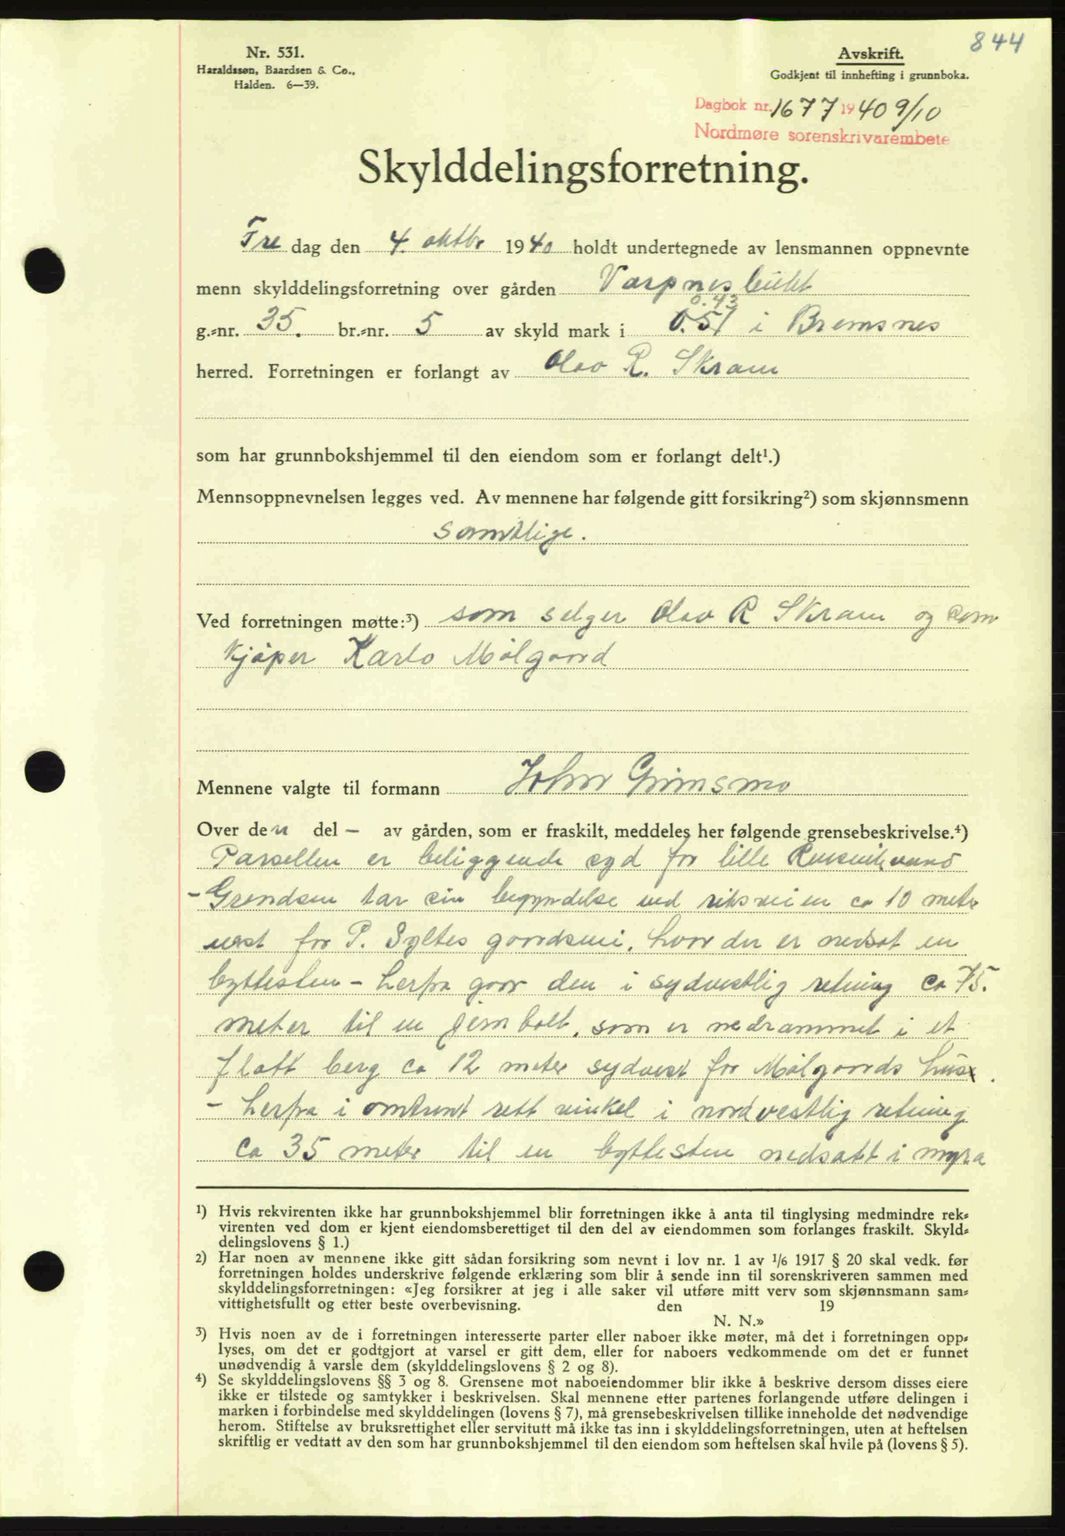 844
Nr. 531.
Haraldssøn, Baardsen & Co.,
Halden. 6—39.
Avskrift.
Godkjent til innhefting i grunnboka.
Dagbok nr. 1677 1940 9/10
Nordmøre sorenskrivarembete
Skylddelingsforretning.
Fre dag den 4. oktbr 1940 holdt undertegnede av lensmannen oppnevnte
menn skylddelingsforretning over gården Varpnesbukt
0.43
g.=nr. 35. br.=nr. 5 av skyld mark i 0.51 i Bremsnes
herred. Forretningen er forlangt av Olav R. Skram
som har grunnbokshjemmel til den eiendom som er forlangt delt¹.)
Mennsoppnevnelsen legges ved. Av mennene har følgende gitt forsikring²) som skjønnsmenn
samtlige.
Ved forretningen møtte:³) som selger Olav R Skram og som
kjøper Karlo Mølgaard
Mennene valgte til formann John Grimsmo
Over den del — av gården, som er fraskilt, meddeles her følgende grensebeskrivelse.⁴)
Parsellen er beliggende syd for lille
- Grendsen tar sin begyndelse ved riksveien ca 10 meter
vest for P. Syltes gaardsvei, hvor der er nedsat en
byttesten - herfra gaar den i sydvestlig retning ca 75.
meter til en jernbolt, som er nedrammet i et
flatt berg ca 12 meter sydvest for Mølgaards hus.
- herfra i omtrent rett vinkel i nordvestlig retning
ca 35 meter til en byttesten nedsatt i myra
¹) Hvis rekvirenten ikke har grunnbokshjemmel blir forretningen ikke å anta til tinglysing medmindre rek=
virenten ved dom er kjent eiendomsberettiget til den del av eiendommen som forlanges fraskilt. Skyld=
delingslovens § 1.)
²) Har noen av mennene ikke gitt sådan forsikring som nevnt i lov nr. 1 av 1/6 1917 § 20 skal vedk. før
forretningen holdes underskrive følgende erklæring som blir å sende inn til sorenskriveren sammen med
skylddelingsforretningen: «Jeg forsikrer at jeg i alle saker vil utføre mitt verv som skjønnsmann sam=
vittighetsfullt og etter beste overbevisning. den 19
N. N.»
³) Hvis noen av de i forretningen interesserte parter eller naboer ikke møter, må det i forretningen opp=
lyses, om det er godtgjort at varsel er gitt dem, eller for naboers vedkommende om det er funnet
unødvendig å varsle dem (skylddelingslovens § 2 og 8).
⁴) Se skylddelingslovens §§ 3 og 8. Grensene mot naboeiendommer blir ikke å beskrive dersom disses eiere
ikke er tilstede og samtykker i beskrivelsen. Skal mennene etter partenes forlangende utføre delingen i
marken i forbindelse med skylddelingen (lovens § 7), må grensebeskrivelsen tillike inneholde det nødvendige
herom. Stiftelse av bruksrettighet eller servitutt må ikke tas inn i skylddelingsforretningen, uten at heftelsen
skriftlig er vedtatt av den som har grunnbokshjemmel til den eiendom som heftelsen skal hvile på (lovens § 5).